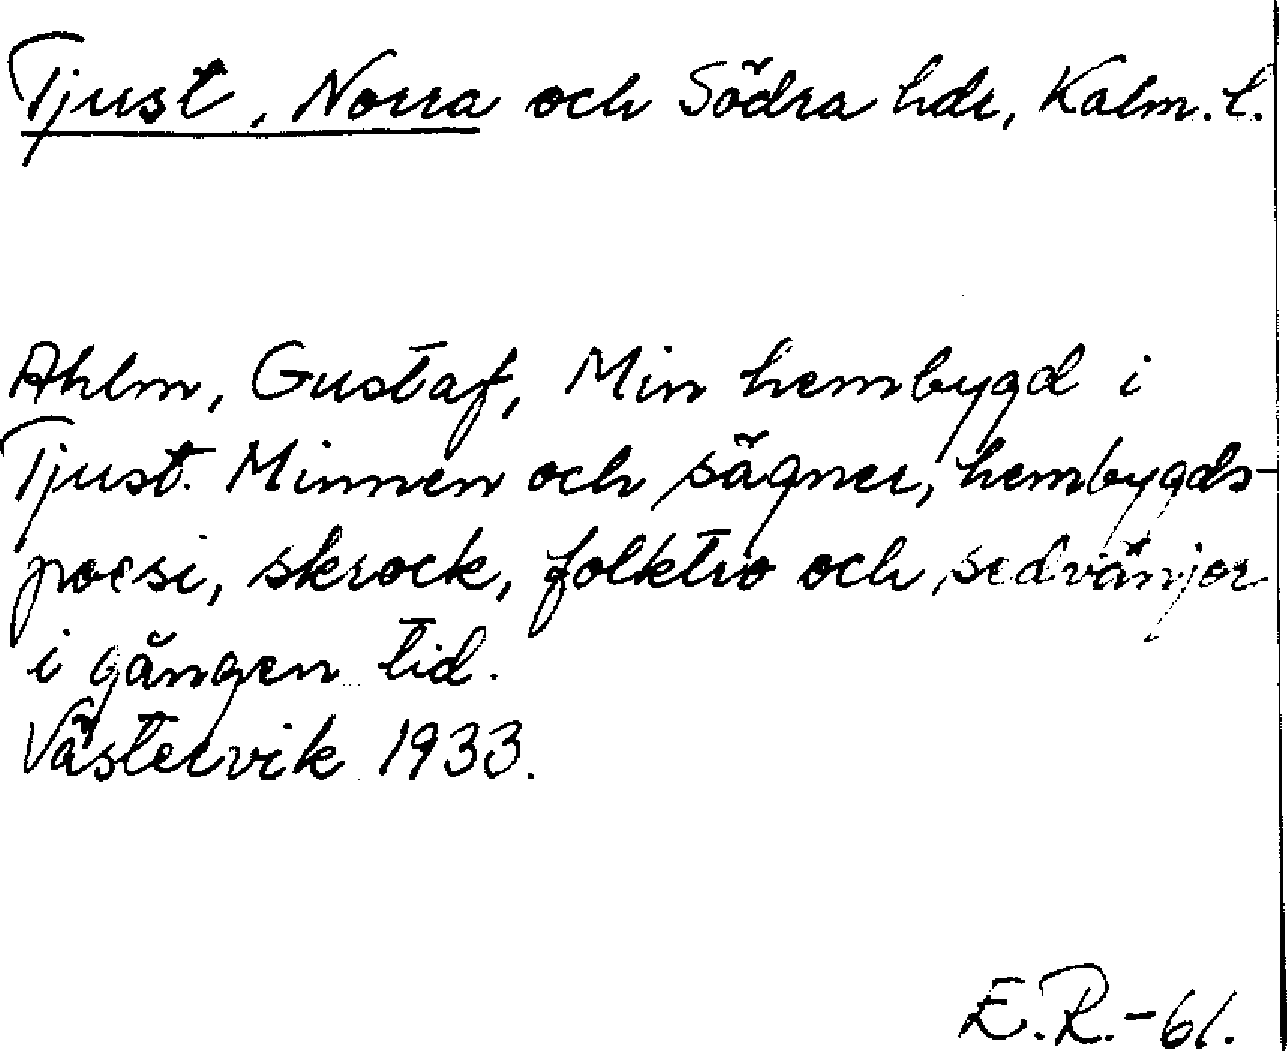 Tjust, Norra och Södra hdr, Kalm. l.
Ahlm, Gustaf, Min hembygd i
Tjust. Minnen och sägner, hembygds-
poesi, skrock, folktro och sedvänjor
i gången tid.
Västervik 1933.
E.R.-61.